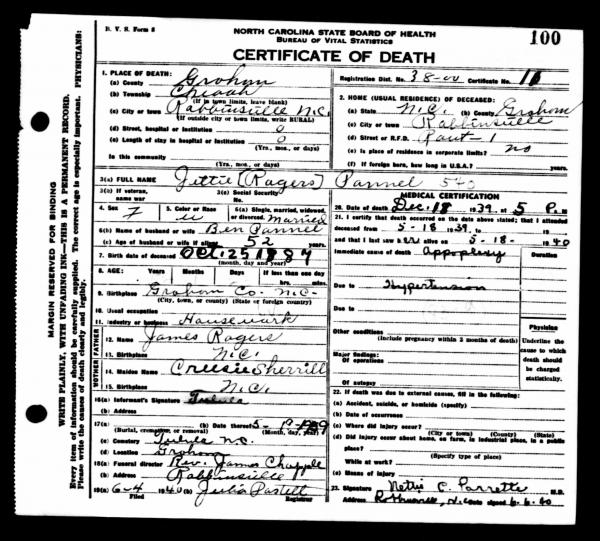 B. V. S. Form 8
NORTH CAROLINA STATE BOARD OF HEALTH
BUREAU OF VITAL STATISTICS
100
CERTIFICATE OF DEATH
1. PLACE OF DEATH:
(a) County Graham
(b) Township Cheoah
(If in town limits, leave blank)
(c) City or town Robbinsville N.C.
(If outside city or town limits, write RURAL)
(d) Street, hospital or institution 0
(e) Length of stay in hospital or institution 0
(Yrs., mos., or days)
In this community
(Yrs., mos., or days)
Registration Dist. No. 38-00 Certificate No. 16
2. HOME (USUAL RESIDENCE) OF DECEASED:
(a) State N.C. (b) County Graham
(c) City or town Robbinsville
(d) Street or R.F.D. Rout 1
(e) Is place of residence in corporate limits? no
(f) If foreign born, how long in U.S.A.? yrs.
3(a) FULL NAME Jettie (Rogers) Pannel
3(b) If veteran, name war
3(c) Social Security No.
4. Sex F
5. Color or Race
6(a) Single, married, widowed, or divorced married
6(b) Name of husband or wife Ben Pannel
6(c) Age of husband or wife if alive 52 years.
7. Birth date of deceased Oct. 25 1887
(month, day and year)
8. AGE: Years Months Days If less than one day
hrs. min.
9. Birthplace Graham Co. N.C.
(City, town, or county) (State or foreign country)
10. Usual occupation
11. Industry or business Housework
FATHER
12. Name James Rogers
13. Birthplace N.C.
MOTHER
14. Maiden Name Creesie Sherrill
15. Birthplace N.C.
16(a) Informant's Signature Tulula
(b) Address
17(a)
(Burial, cremation, or removal)
(b) Date thereof
(Month, day, year)
(c) Cemetery Tulula N.C.
(d) Location Graham
18(a) Funeral director Rev. James Chapple
(b) Address Robbinsville
19(a) 6-4 1940 (b) Julia Pastell
Filed Registrar
MEDICAL CERTIFICATION
20. Date of DEATH Dec. 18 1939, at 5 P.M
21. I certify that death occurred on the date above stated; that I attended
deceased from 5-18 1939 to 19
and that I last saw her alive on 5-18- 1940
Immediate cause of death Appoplexy
Duration
Due to Hypertension
Due to
Other conditions
(Include pregnancy within 3 months of death)
Major findings:
Of operations
Of autopsy
Physician
Underline the cause to which death should be charged statistically.
22. If death was due to external causes, fill in the following:
(a) Accident, suicide, or homicide (specify)
(b) Date of occurrence
(c) Where did injury occur?
(City or town) (County) (State)
(d) Did injury occur about home, on farm, in industrial place, in a public place?
(Specify type of place)
While at work?
(e) Means of injury
23. Signature Nettie C. Parrette M.D.
Address N.C. Date signed 6-6-40
MARGIN RESERVED FOR BINDING
WRITE PLAINLY, WITH UNFADING INK—THIS IS A PERMANENT RECORD.
Every item of information should be carefully supplied. The correct age is especially important. PHYSICIANS:
Please write the causes of death clearly and legibly.